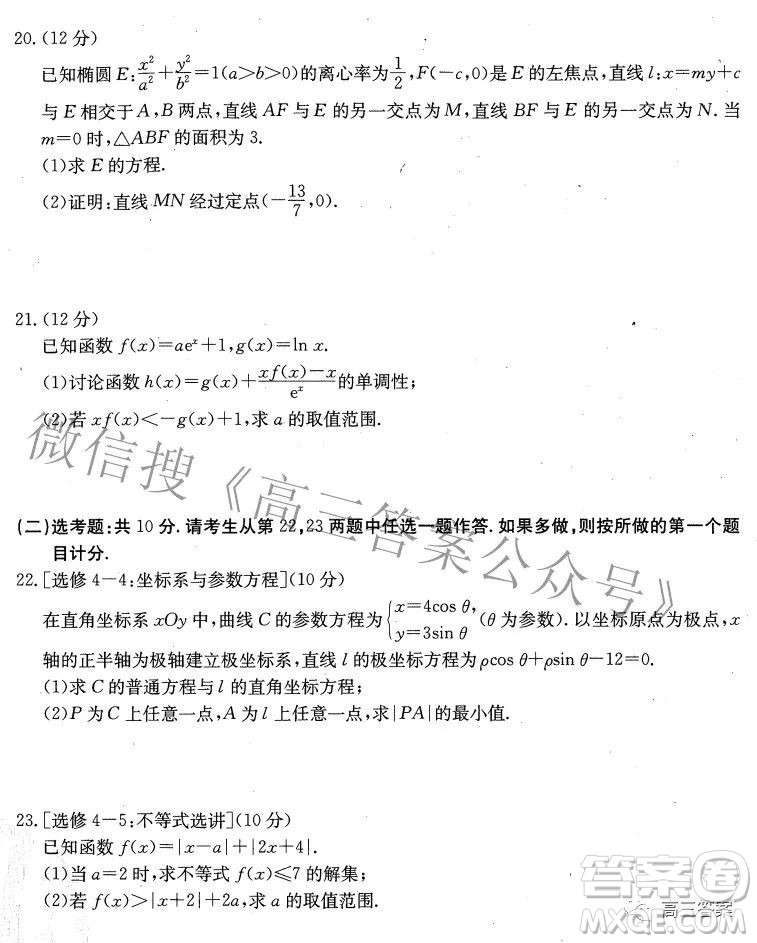 20.(12 分)
已知椭圆 E:x²/a²+y²/b²=1(a>b>0)的离心率为1/2,F(-c,0)是 E 的左焦点,直线 l:x=my+c
与 E 相交于 A,B 两点,直线 AF 与 E 的另一交点为 M,直线 BF 与 E 的另一交点为 N. 当
m=0 时,△ABF 的面积为 3.
(1)求 E 的方程.
(2)证明:直线 MN 经过定点(-13/7,0).
21.(12 分)
已知函数 f(x)=aeˣ+1,g(x)=ln x.
(1)讨论函数 h(x)=g(x)+(xf(x)-x)/eˣ的单调性;
(2)若 xf(x)<-g(x)+1,求 a 的取值范围.
微信搜《高三答案公众号》
(二)选考题:共 10 分. 请考生从第 22,23 两题中任选一题作答. 如果多做,则按所做的第一个题
目计分.
22.[选修 4-4:坐标系与参数方程](10 分)
在直角坐标系 xOy 中,曲线 C 的参数方程为{x=4cos θ, y=3sin θ (θ 为参数). 以坐标原点为极点,x
轴的正半轴为极轴建立极坐标系,直线 l 的极坐标方程为ρcos θ+ρsin θ-12=0.
(1)求 C 的普通方程与 l 的直角坐标方程;
(2)P 为 C 上任意一点,A 为 l 上任意一点,求|PA|的最小值.
23.[选修 4-5:不等式选讲](10 分)
已知函数 f(x)=|x-a|+|2x+4|.
(1)当 a=2 时,求不等式 f(x)≤7 的解集;
(2)若 f(x)>|x+2|+2a,求 a 的取值范围.
答案圈
高三答案
MXQE.COM